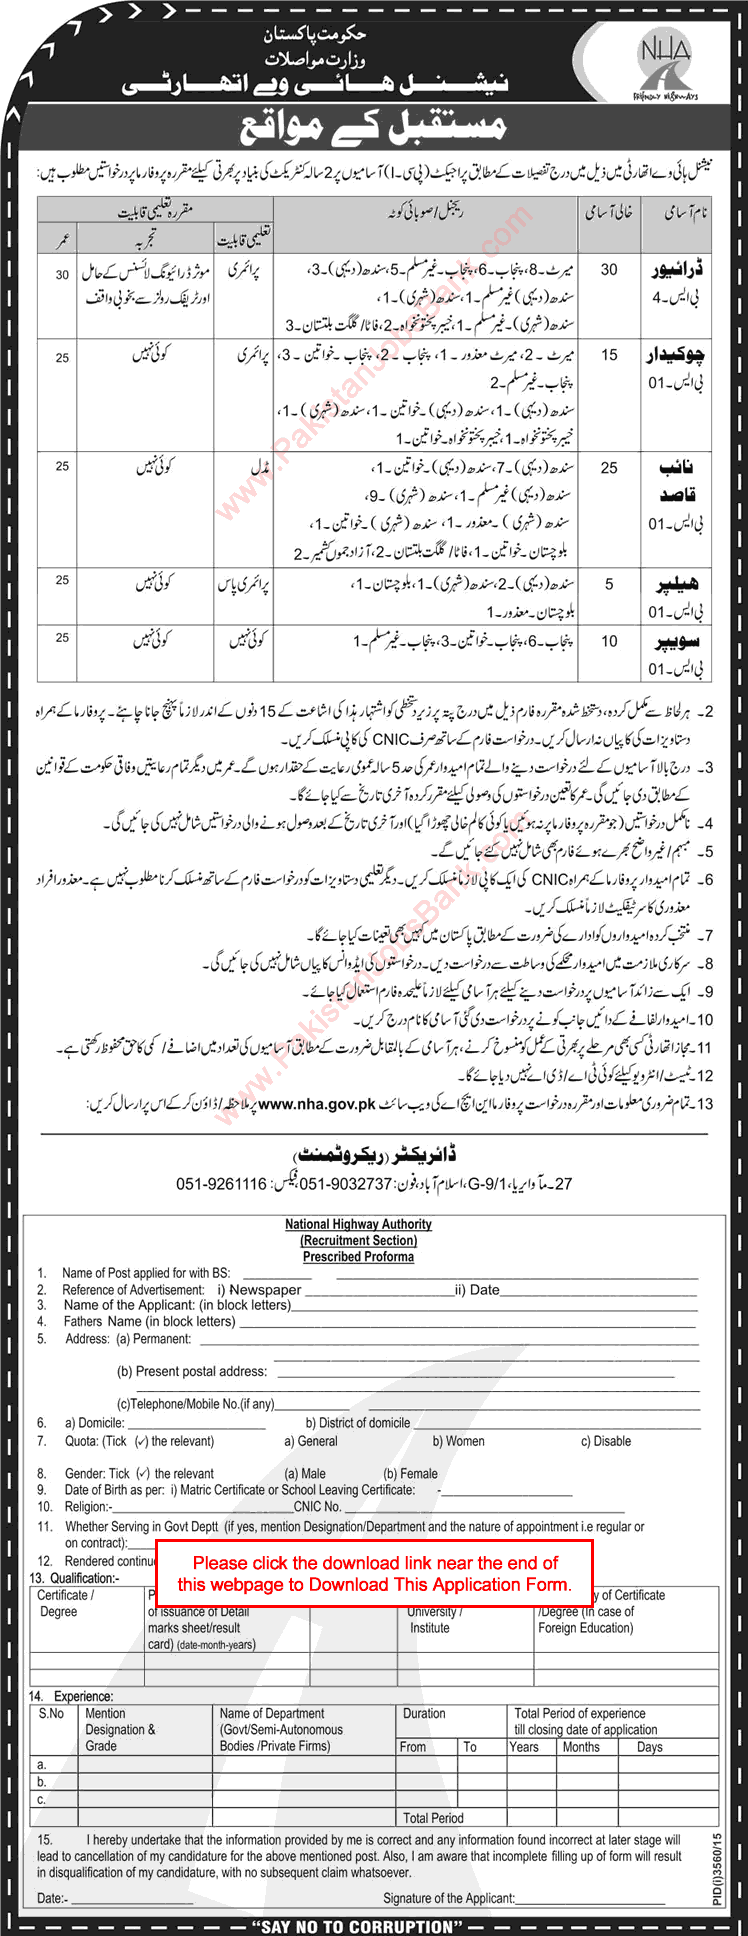 حکومت پاکستان
وزارت مواصلات
نیشنل ھائی وے اتھارٹی
NHA
FRIENDLY HIGHWAYS
مستقبل کے مواقع
نیشنل ہائی وے اتھارٹی میں ذیل میں درج تفصیلات کے مطابق پراجیکٹ (پی سی-I) آسامیوں پر 2 سالہ کنٹریکٹ کی بنیاد پر بھرتی کیلئے مقررہ پروفارما پر درخواستیں مطلوب ہیں:
نام آسامی خالی آسامی ریجنل/صوبائی کوٹہ مقررہ تعلیمی قابلیت
تعلیمی قابلیت تجربہ عمر
ڈرائیور 30 میرٹ-8، پنجاب-6، پنجاب-غیر مسلم-5، سندھ (دیہی)-3، پرائمری موثر ڈرائیونگ لائسنس کے حامل 30
بی ایس-4 سندھ (دیہی) غیر مسلم-1، سندھ (شہری)-1، اور ٹریفک رولز سے بخوبی واقف
سندھ (شہری)-غیر مسلم-1، خیبر پختونخواہ-2، فاٹا/گلگت بلتستان-3
چوکیدار 15 میرٹ-2، میرٹ معذور-1، پنجاب-2، پنجاب-خواتین-3، پرائمری کوئی نہیں 25
بی ایس-01 پنجاب-غیر مسلم-2
سندھ (دیہی)-1، سندھ (دیہی)-خواتین-1، سندھ (شہری)-1،
خیبر پختونخواہ-1، خیبر پختونخواہ-خواتین-1
نائب 25 سندھ (دیہی)-7، سندھ (دیہی)-خواتین-1، مڈل کوئی نہیں 25
قاصد سندھ (دیہی) غیر مسلم-1، سندھ (شہری)-9،
بی ایس-01 سندھ (شہری)-معذور-1، سندھ (شہری)-خواتین-1،
بلوچستان-خواتین-1، فاٹا/گلگت بلتستان-2، آزاد جموں کشمیر-2
ھیلپر 5 سندھ (دیہی)-2، سندھ (شہری)-1، بلوچستان-1، پرائمری پاس کوئی نہیں 25
بی ایس-01 بلوچستان-معذور-1
سویپر 10 پنجاب-6، پنجاب-خواتین-3، پنجاب-غیر مسلم-1 کوئی نہیں کوئی نہیں 25
بی ایس-01
2- ہر لحاظ سے مکمل کردہ، دستخط شدہ مقررہ فارم ذیل میں درج پتہ پر زیر دستخطی کو اشتہار ہذا کی اشاعت کے 15 دنوں کے اندر لازماً پہنچ جانا چاہئے۔ پروفارما کے ہمراہ
دستاویزات کی کاپیاں نہ ارسال کریں۔ درخواست فارم کے ساتھ صرف CNIC کی کاپی منسلک کریں۔
3- درج بالا آسامیوں کے لئے درخواست دینے والے تمام امیدوار عمر کی حد 5 سالہ عمومی رعایت کے حقدار ہوں گے۔ عمر میں دیگر تمام رعایتیں وفاقی حکومت کے قوانین
کے مطابق دی جائیں گی۔ عمر کا تعین درخواستوں کی وصولی کیلئے مقرر کردہ آخری تاریخ سے کیا جائے گا۔
4- نامکمل درخواستیں (جو مقررہ پروفارما پر نہ ہوئیں یا کوئی کالم خالی چھوڑا گیا) اور آخری تاریخ کے بعد وصول ہونے والی درخواستیں شامل نہیں کی جائیں گی۔
5- مبہم/غیر واضح بھرے ہوئے فارم بھی شامل نہیں کئے جائیں گے۔
6- تمام امیدوار پروفارما کے ہمراہ CNIC کی ایک کاپی لازماً منسلک کریں۔ دیگر تعلیمی دستاویزات کو درخواست فارم کے ساتھ منسلک کرنا مطلوب نہیں ہے۔ معذور افراد
معذوری کا سرٹیفکیٹ لازماً منسلک کریں۔
7- منتخب کردہ امیدواروں کو ادارے کی ضرورت کے مطابق پاکستان میں کہیں بھی تعینات کیا جائے گا۔
8- سرکاری ملازمت میں امیدوار محکمے کی وساطت سے درخواست دیں۔ درخواستوں کی ایڈوانس کاپیاں شامل نہیں کی جائیں گی۔
9- ایک سے زائد آسامیوں پر درخواست دینے کیلئے ہر آسامی کیلئے لازماً علیحدہ فارم استعمال کیا جائے۔
10- امیدوار لفافے کے دائیں جانب کونے پر درخواست دی گئی آسامی کا نام درج کریں۔
11- مجاز اتھارٹی کسی بھی مرحلے پر بھرتی کے عمل کو منسوخ کرنے، ہر آسامی کے بالمقابل ضرورت کے مطابق آسامیوں کی تعداد میں اضافے/کمی کا حق محفوظ رکھتی ہے۔
12- ٹیسٹ/انٹرویو کیلئے کوئی ٹی اے/ڈی اے نہیں دیا جائے گا۔
13- تمام ضروری معلومات اور مقررہ درخواست پروفارما این ایچ اے کی ویب سائٹ www.nha.gov.pk پر ملاحظہ/ڈاؤن کر کے اس پر ارسال کریں:
ڈائریکٹر (ریکروٹمنٹ)
27-ماؤ ایریا، G-9/1، اسلام آباد، فون: 051-9032737، فیکس: 051-9261116
National Highway Authority
(Recruitment Section)
Prescribed Proforma
1. Name of Post applied for with BS:
2. Reference of Advertisement: i) Newspaper ii) Date
3. Name of the Applicant: (in block letters)
4. Fathers Name (in block letters)
5. Address: (a) Permanent:
(b) Present postal address:
(c)Telephone/Mobile No.(if any)
6. a) Domicile: b) District of domicile
7. Quota: (Tick (✓) the relevant) a) General b) Women c) Disable
8. Gender: Tick (✓) the relevant (a) Male (b) Female
9. Date of Birth as per: i) Matric Certificate or School Leaving Certificate: -
10. Religion:- CNIC No.
11. Whether Serving in Govt Deptt (if yes, mention Designation/Department and the nature of appointment i.e regular or
on contract):
12. Rendered continu
Please click the download link near the end of
this webpage to Download This Application Form.
13. Qualification:-
Certificate / y of Certificate
Degree of issuance of Detail University / /Degree (In case of
marks sheet/result Institute Foreign Education)
card) (date-month-years)
14. Experience:
S.No Mention Name of Department Duration Total Period of experience
Designation & (Govt/Semi-Autonomous till closing date of application
Grade Bodies /Private Firms) From To Years Months Days
a.
b.
c.
Total Period
15. I hereby undertake that the information provided by me is correct and any information found incorrect at later stage will
lead to cancellation of my candidature for the above mentioned post. Also, I am aware that incomplete filling up of form will result
in disqualification of my candidature, with no subsequent claim whatsoever.
Date:- Signature of the Applicant:
PID(i)3560/15
"SAY NO TO CORRUPTION"
www.PakistanJobsBank.com
www.PakistanJobsBank.com